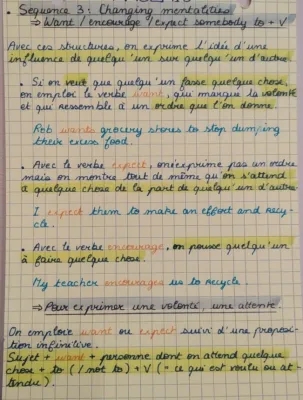 Sequence 3: Changing mentalities
⇒ Want / encourage / expect somebody to + V
Avec ces structures, on exprime l'idée d'une
influence de quelqu'un sur quelqu'un d'autre.
• Si on veut que quelqu'un fasse quelque chose,
on emploie le verbe want, qui marque la volonté
et qui ressemble à un ordre que l'on donne.
Rob wants grocery stores to stop dumping
their excess food.
• Avec le verbe expect, on exprime pas un ordre
mais on montre tout de même qu'on s'attend
à quelque chose de la part de quelqu'un d'autre.
I expect them to make an effort and recy-
cle.
• Avec le verbe encourage, on pousse quelqu'un
à faire quelque chose.
My teacher encourages us to recycle.
⇒ Pour exprimer une volonté, une attente.
On emploie want ou expect suivi d'une proposi-
tion infinitive.
Sujet + want + personne dont on attend quelque
chose + to (/ not to) + V (= ce qui est voulu ou at-
tendu).